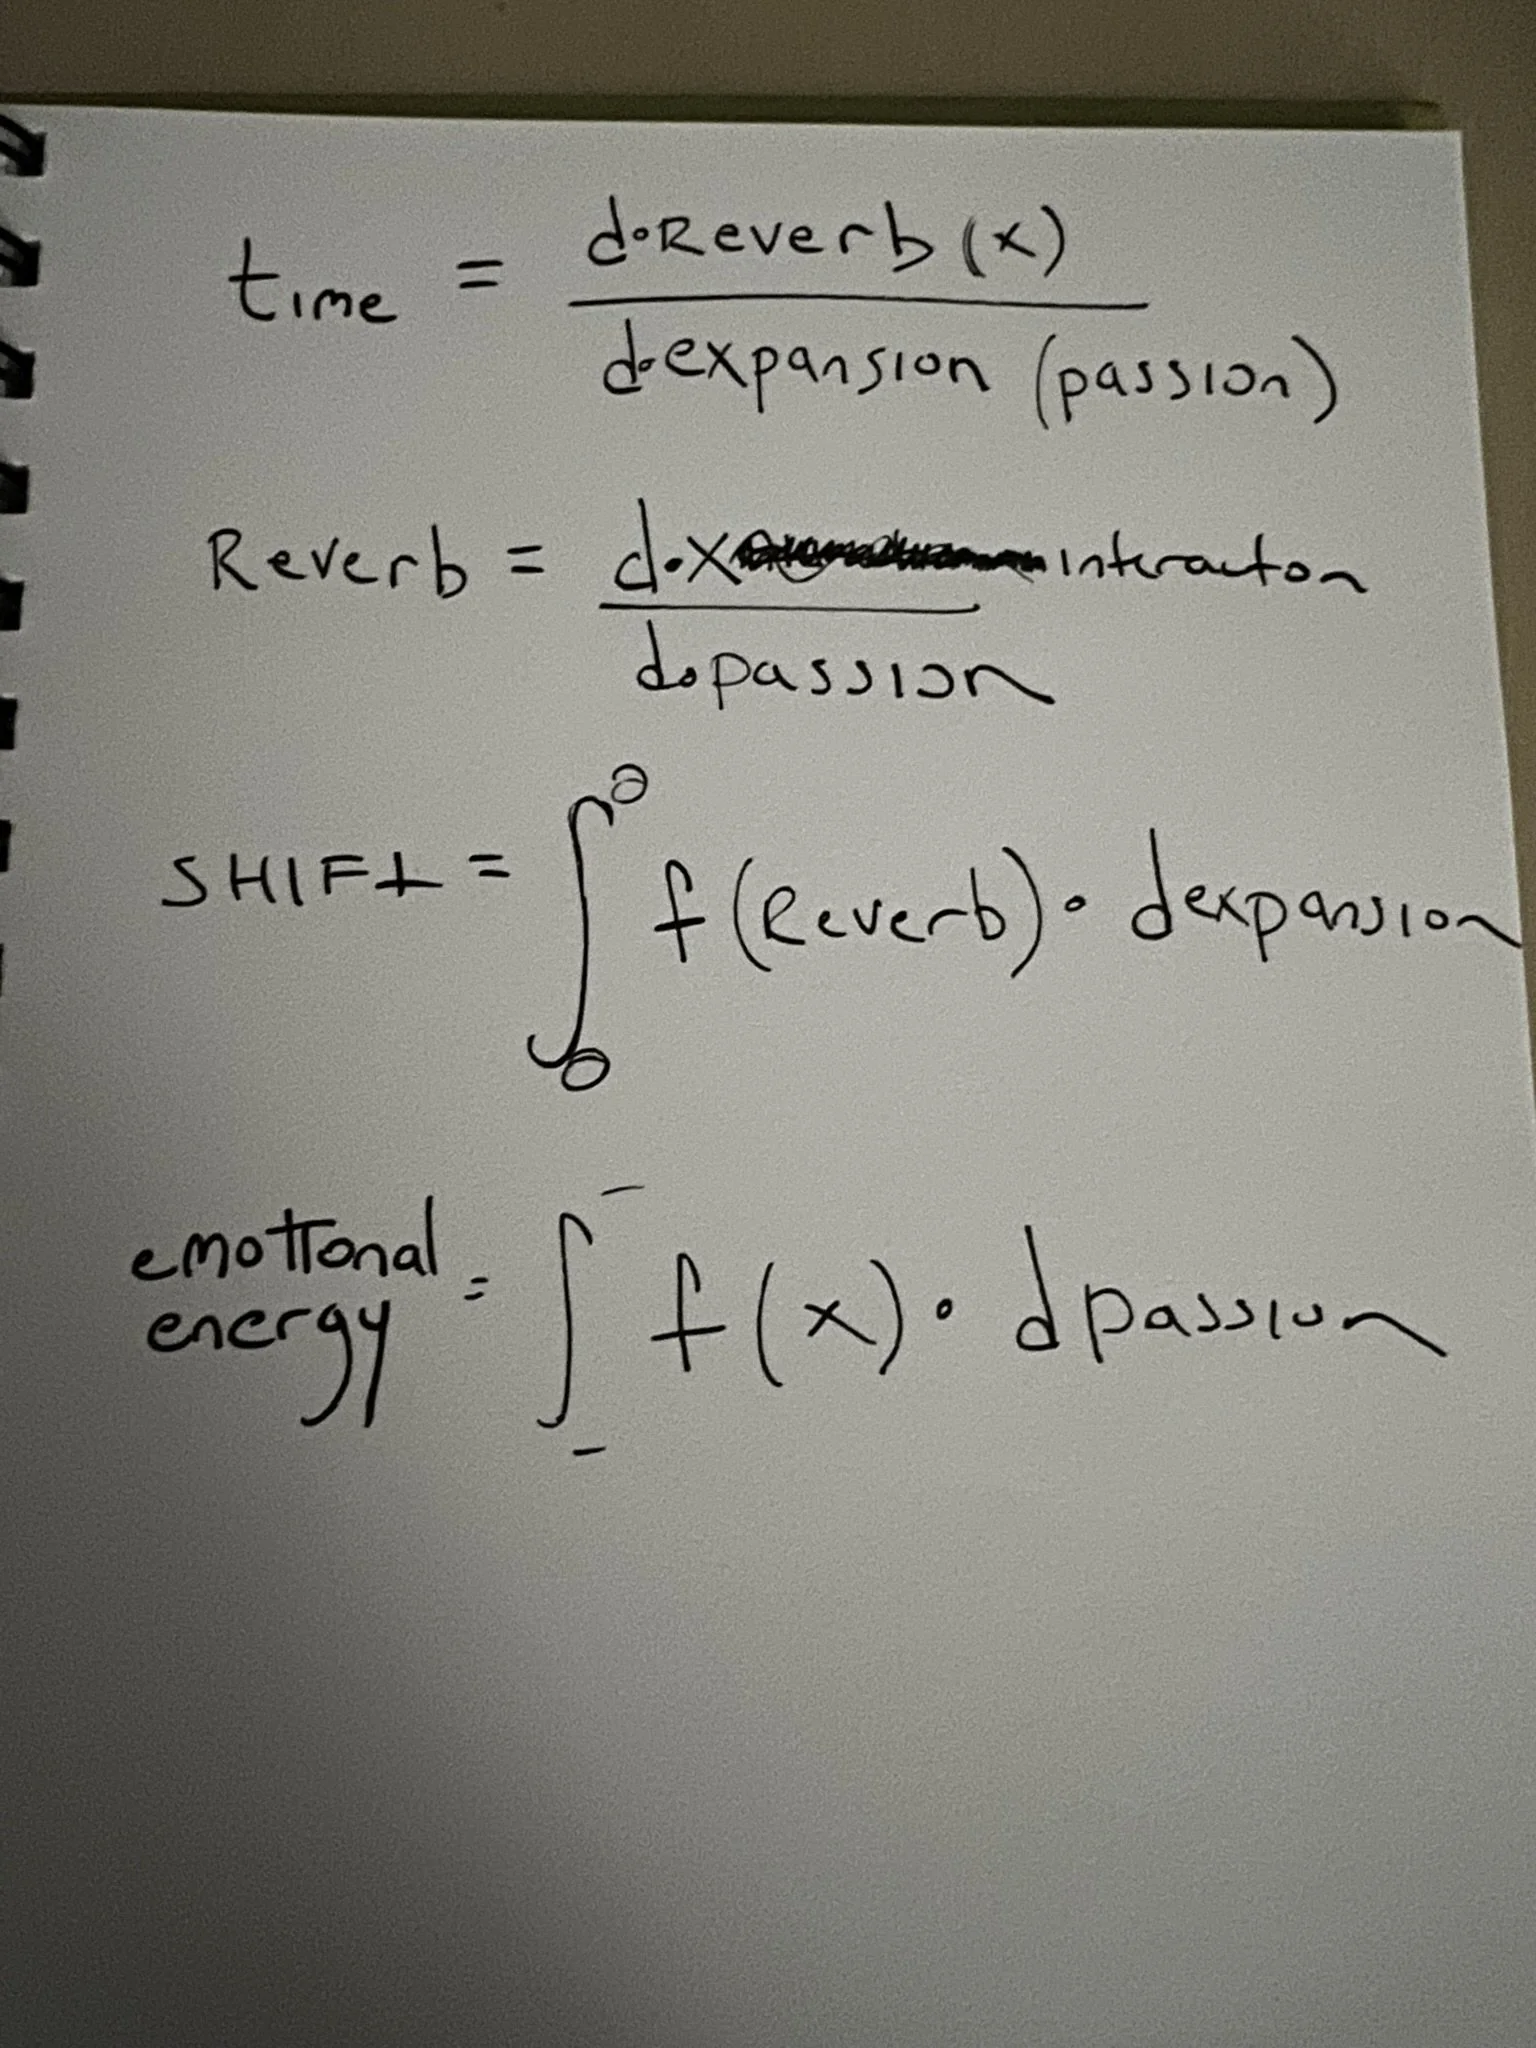 time = d•Reverb (x)
d•expansion (passion)
Reverb = d•x interaction
d•passion
SHIFt = ∫ 0 0 f (Reverb) • dexpansion
emotional
energy = ∫ - - f (x) • dpassion